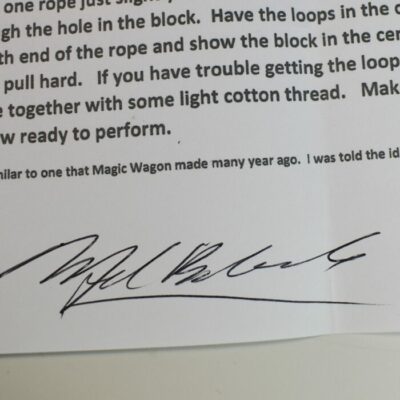 one rope just slightly
gh the hole in the block. Have the loops in the c
th end of the rope and show the block in the cen
pull hard. If you have trouble getting the loop
e together with some light cotton thread. Mak
w ready to perform.
milar to one that Magic Wagon made many year ago. I was told the id